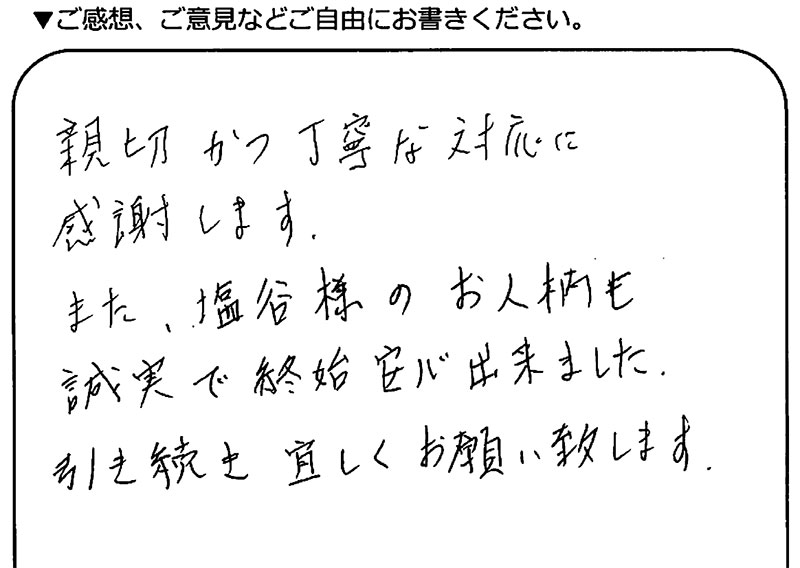 ▼ご感想、ご意見などご自由にお書きください。
親切かつ丁寧な対応に
感謝します.
また、塩谷様のお人柄も
誠実で終始安心出来ました.
引き続き宜しくお願い致します.